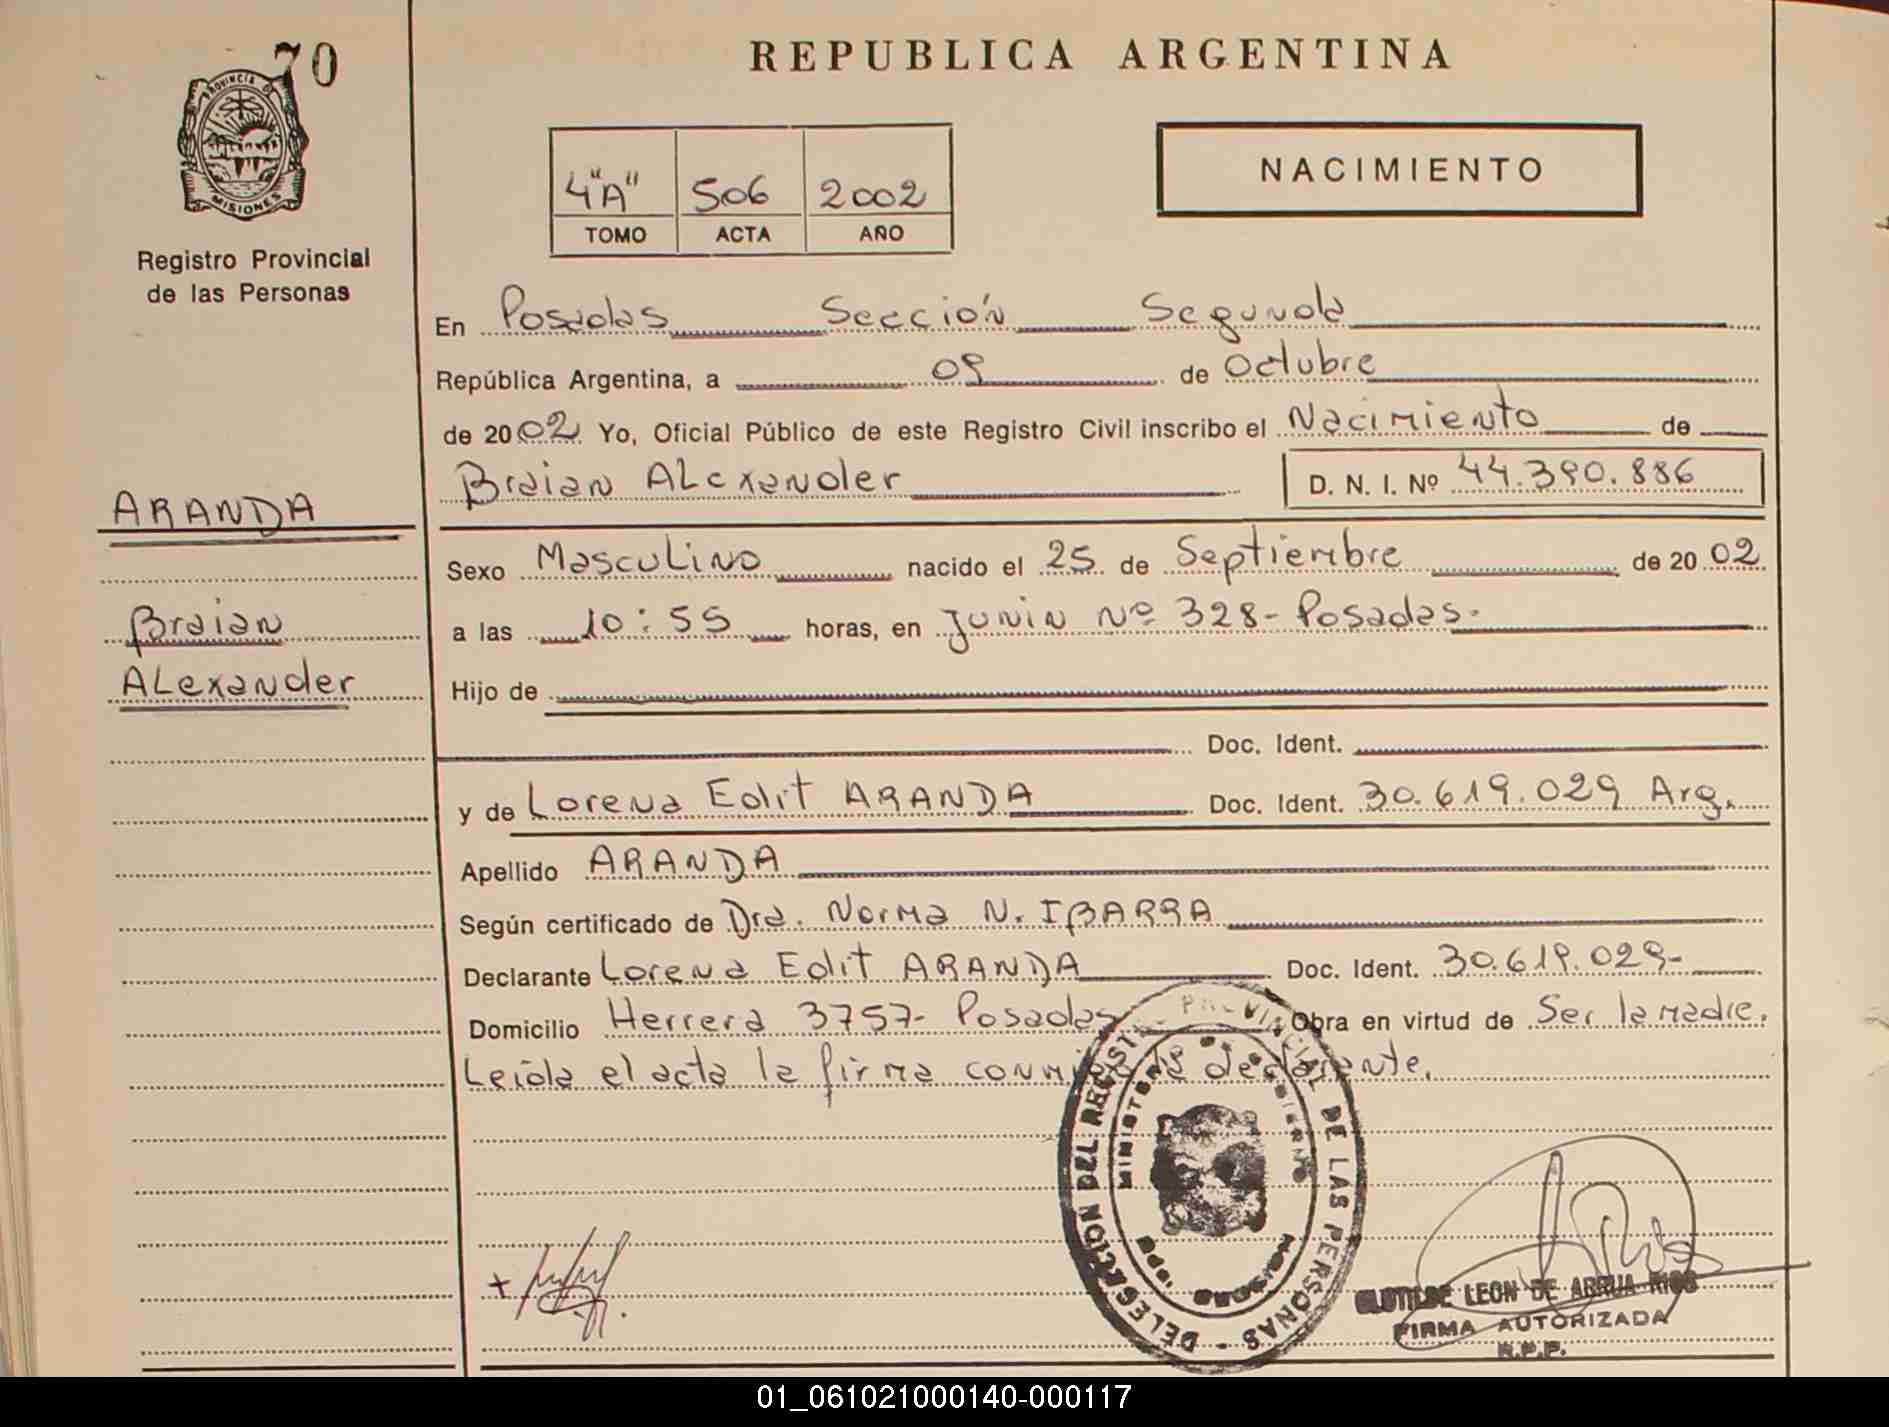 70
REPUBLICA ARGENTINA
PROVINCIA DE
MISIONES
Registro Provincial
de las Personas
4"A" 506 2002
TOMO ACTA AÑO
NACIMIENTO
En Posadas Sección Segunda
República Argentina, a 09 de Octubre
de 2002 Yo, Oficial Público de este Registro Civil inscribo el Nacimiento de
Braian ALexander D. N. I. Nº 44.390.886
ARANDA
Braian
ALexander
Sexo MascuLino nacido el 25 de Septiembre de 20 02
a las 10:55 horas, en Junin Nº 328- Posadas-
Hijo de
Doc. Ident.
y de Lorena Edit ARANDA Doc. Ident. 30.619.029 Arg.
Apellido ARANDA
Según certificado de Dra. Norma N. IBARRA
Declarante Lorena Edit ARANDA Doc. Ident. 30.619.029-
Domicilio Herrera 3757- Posadas Obra en virtud de Ser la madre.
Leída el acta la firma conmigo la declarante.
DELEGACION DEL REGISTRO PROVINCIAL DE LAS PERSONAS -
MINISTERIO DE GOBIERNO
MISIONES
CLOTILDE LEON DE ARRUA RIOS
FIRMA AUTORIZADA
R.P.P.
01_061021000140-000117